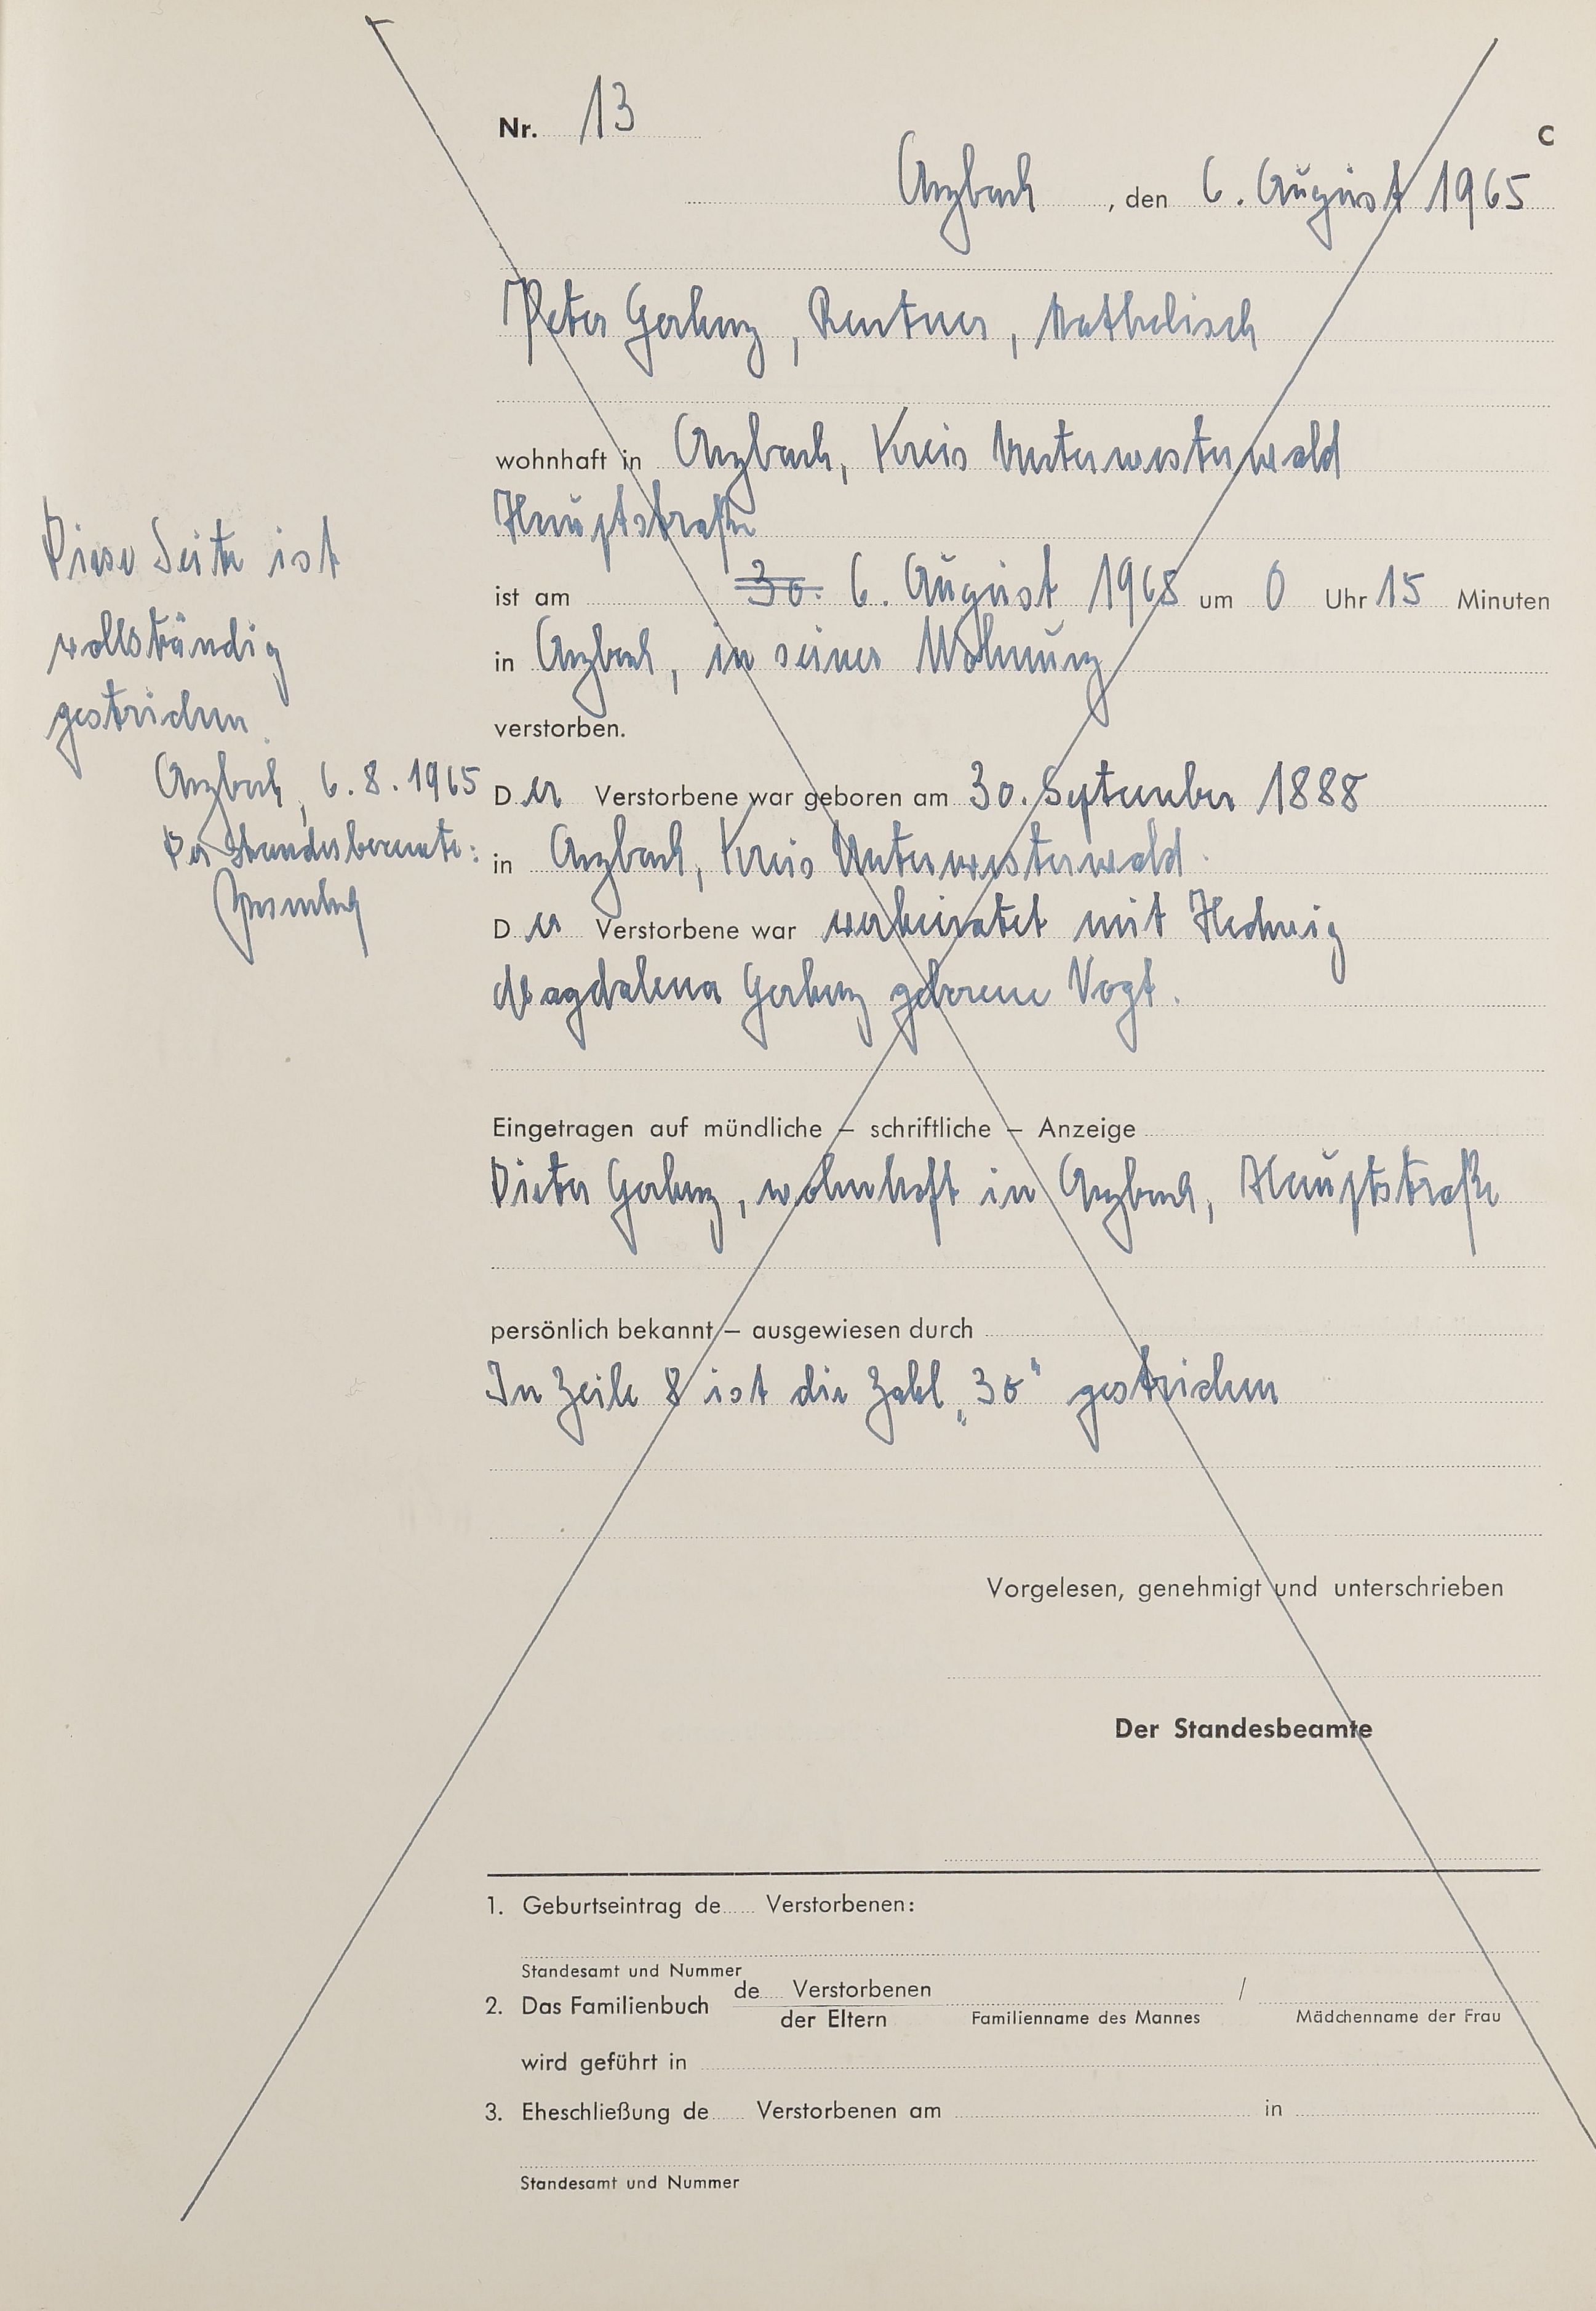 Nr. 13
C
Arzbach, den 6. August 1965
Peter Gerharz, Rentner, katholisch
wohnhaft in Arzbach, Kreis Unterwesterwald
Hauptstraße
ist am 30. 6. August 1965 um 0 Uhr 15 Minuten
in Arzbach, in seiner Wohnung
verstorben.
Der Verstorbene war geboren am 30. September 1888
in Arzbach, Kreis Unterwesterwald.
Der Verstorbene war verheiratet mit Hedwig
Magdalena Gerharz geborene Vogt.
Eingetragen auf mündliche – schriftliche – Anzeige
Dieter Gerharz, wohnhaft in Arzbach, Hauptstraße
persönlich bekannt – ausgewiesen durch
In Zeile 8 ist die Zahl „30“ gestrichen
Diese Seite ist
vollständig
gestrichen.
Arzbach, 6.8.1965
Der Standesbeamte:
Vorgelesen, genehmigt und unterschrieben
Der Standesbeamte
1. Geburtseintrag de Verstorbenen:
Standesamt und Nummer
2. Das Familienbuch de Verstorbenen /
der Eltern Familienname des Mannes Mädchenname der Frau
wird geführt in
3. Eheschließung de Verstorbenen am in
Standesamt und Nummer